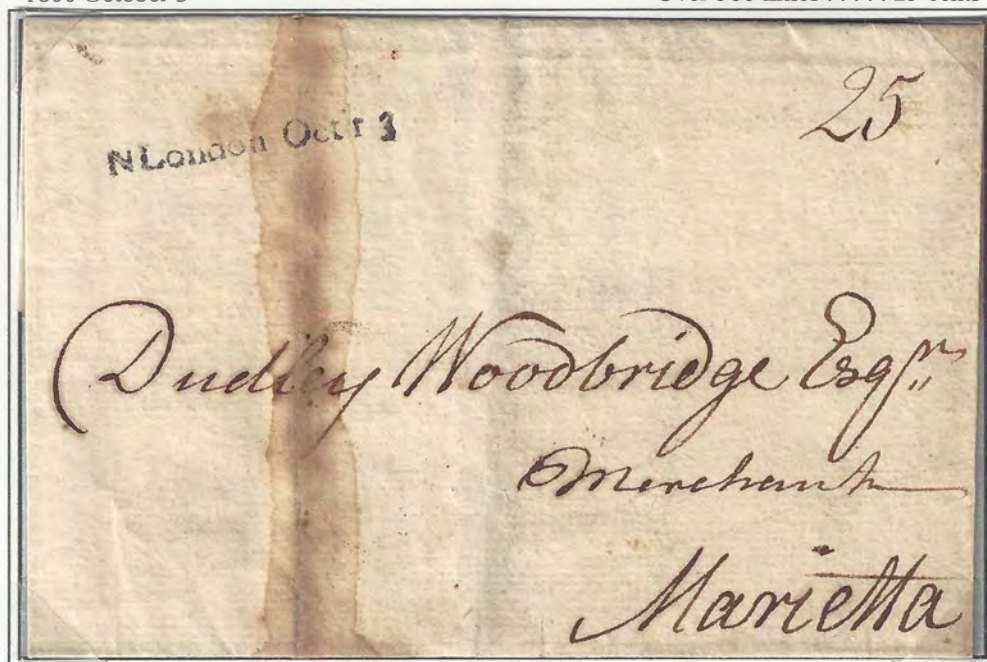 25
N London Oct'r 3
Dudley Woodbridge Esqr.
Merchant
Marietta